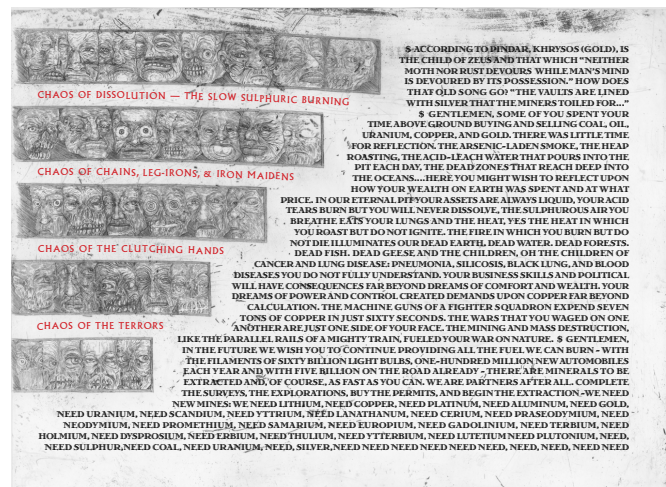 CHAOS OF DISSOLUTION — THE SLOW SULPHURIC BURNING
CHAOS OF CHAINS, LEG-IRONS, & IRON MAIDENS
CHAOS OF THE CLUTCHING HANDS
CHAOS OF THE TERRORS
$ ACCORDING TO PINDAR, KHRYSOS (GOLD), IS
THE CHILD OF ZEUS AND THAT WHICH "NEITHER
MOTH NOR RUST DEVOURS WHILE MAN'S MIND
IS DEVOURED BY ITS POSSESSION." HOW DOES
THAT OLD SONG GO? "THE VAULTS ARE LINED
WITH SILVER THAT THE MINERS TOILED FOR..."
$ GENTLEMEN, SOME OF YOU SPENT YOUR
TIME ABOVE GROUND BUYING AND SELLING COAL, OIL,
URANIUM, COPPER, AND GOLD. THERE WAS LITTLE TIME
FOR REFLECTION. THE ARSENIC-LADEN SMOKE, THE HEAP
ROASTING, THE ACID-LEACH WATER THAT POURS INTO THE
PIT EACH DAY, THE DEAD ZONES THAT REACH DEEP INTO
THE OCEANS....HERE YOU MIGHT WISH TO REFLECT UPON
HOW YOUR WEALTH ON EARTH WAS SPENT AND AT WHAT
PRICE. IN OUR ETERNAL PIT YOUR ASSETS ARE ALWAYS LIQUID, YOUR
TEARS BURN BUT YOU WILL NEVER DISSOLVE, THE SULPHUROUS AIR YOU
BREATHE EATS YOUR LUNGS AND THE HEAT, YES THE HEAT IN WHICH
YOU ROAST BUT DO NOT IGNITE. THE FIRE IN WHICH YOU BURN BUT DO
NOT DIE ILLUMINATES OUR DEAD EARTH, DEAD WATER. DEAD FORESTS.
DEAD FISH. DEAD GEESE AND THE CHILDREN, OH THE CHILDREN OF
CANCER AND LUNG DISEASE: PNEUMONIA, SILICOSIS, BLACK LUNG, AND BLOOD
DISEASES YOU DO NOT FULLY UNDERSTAND. YOUR BUSINESS SKILLS AND POLITICAL
WILL HAVE CONSEQUENCES FAR BEYOND DREAMS OF COMFORT AND WEALTH. YOUR
DREAMS OF POWER AND CONTROL CREATED DEMANDS UPON COPPER FAR BEYOND
CALCULATION. THE MACHINE GUNS OF A FIGHTER SQUADRON EXPEND SEVEN
TONS OF COPPER IN JUST SIXTY SECONDS. THE WARS THAT YOU WAGED ON ONE
ANOTHER ARE JUST ONE SIDE OF YOUR FACE. THE MINING AND MASS DESTRUCTION,
LIKE THE PARALLEL RAILS OF A MIGHTY TRAIN, FUELED YOUR WAR ON NATURE. $ GENTLEMEN,
IN THE FUTURE WE WISH YOU TO CONTINUE PROVIDING ALL THE FUEL WE CAN BURN - WITH
THE FILAMENTS OF SIXTY BILLION LIGHT BULBS, ONE-HUNDRED MILLION NEW AUTOMOBILES
EACH YEAR AND WITH FIVE BILLION ON THE ROAD ALREADY - THERE ARE MINERALS TO BE
EXTRACTED AND, OF COURSE, AS FAST AS YOU CAN. WE ARE PARTNERS AFTER ALL. COMPLETE
THE SURVEYS, THE EXPLORATIONS, BUY THE PERMITS, AND BEGIN THE EXTRACTION -WE NEED
NEW MINES: WE NEED LITHIUM, NEED COPPER, NEED PLATINUM, NEED ALUMINUM, NEED GOLD,
NEED URANIUM, NEED SCANDIUM, NEED YTTRIUM, NEED LANATHANUM, NEED CERIUM, NEED PRASEODYMIUM, NEED
NEODYMIUM, NEED PROMETHIUM, NEED SAMARIUM, NEED EUROPIUM, NEED GADOLINIUM, NEED TERBIUM, NEED
HOLMIUM, NEED DYSPROSIUM, NEED ERBIUM, NEED THULIUM, NEED YTTERBIUM, NEED LUTETIUM NEED PLUTONIUM, NEED,
NEED SULPHUR,NEED COAL, NEED URANIUM, NEED, SILVER,NEED NEED NEED NEED NEED NEED, NEED, NEED NEED